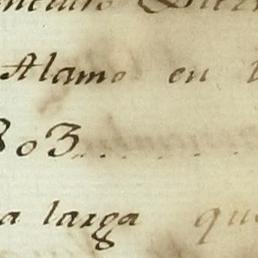 Alamo en
803.......
a larga que